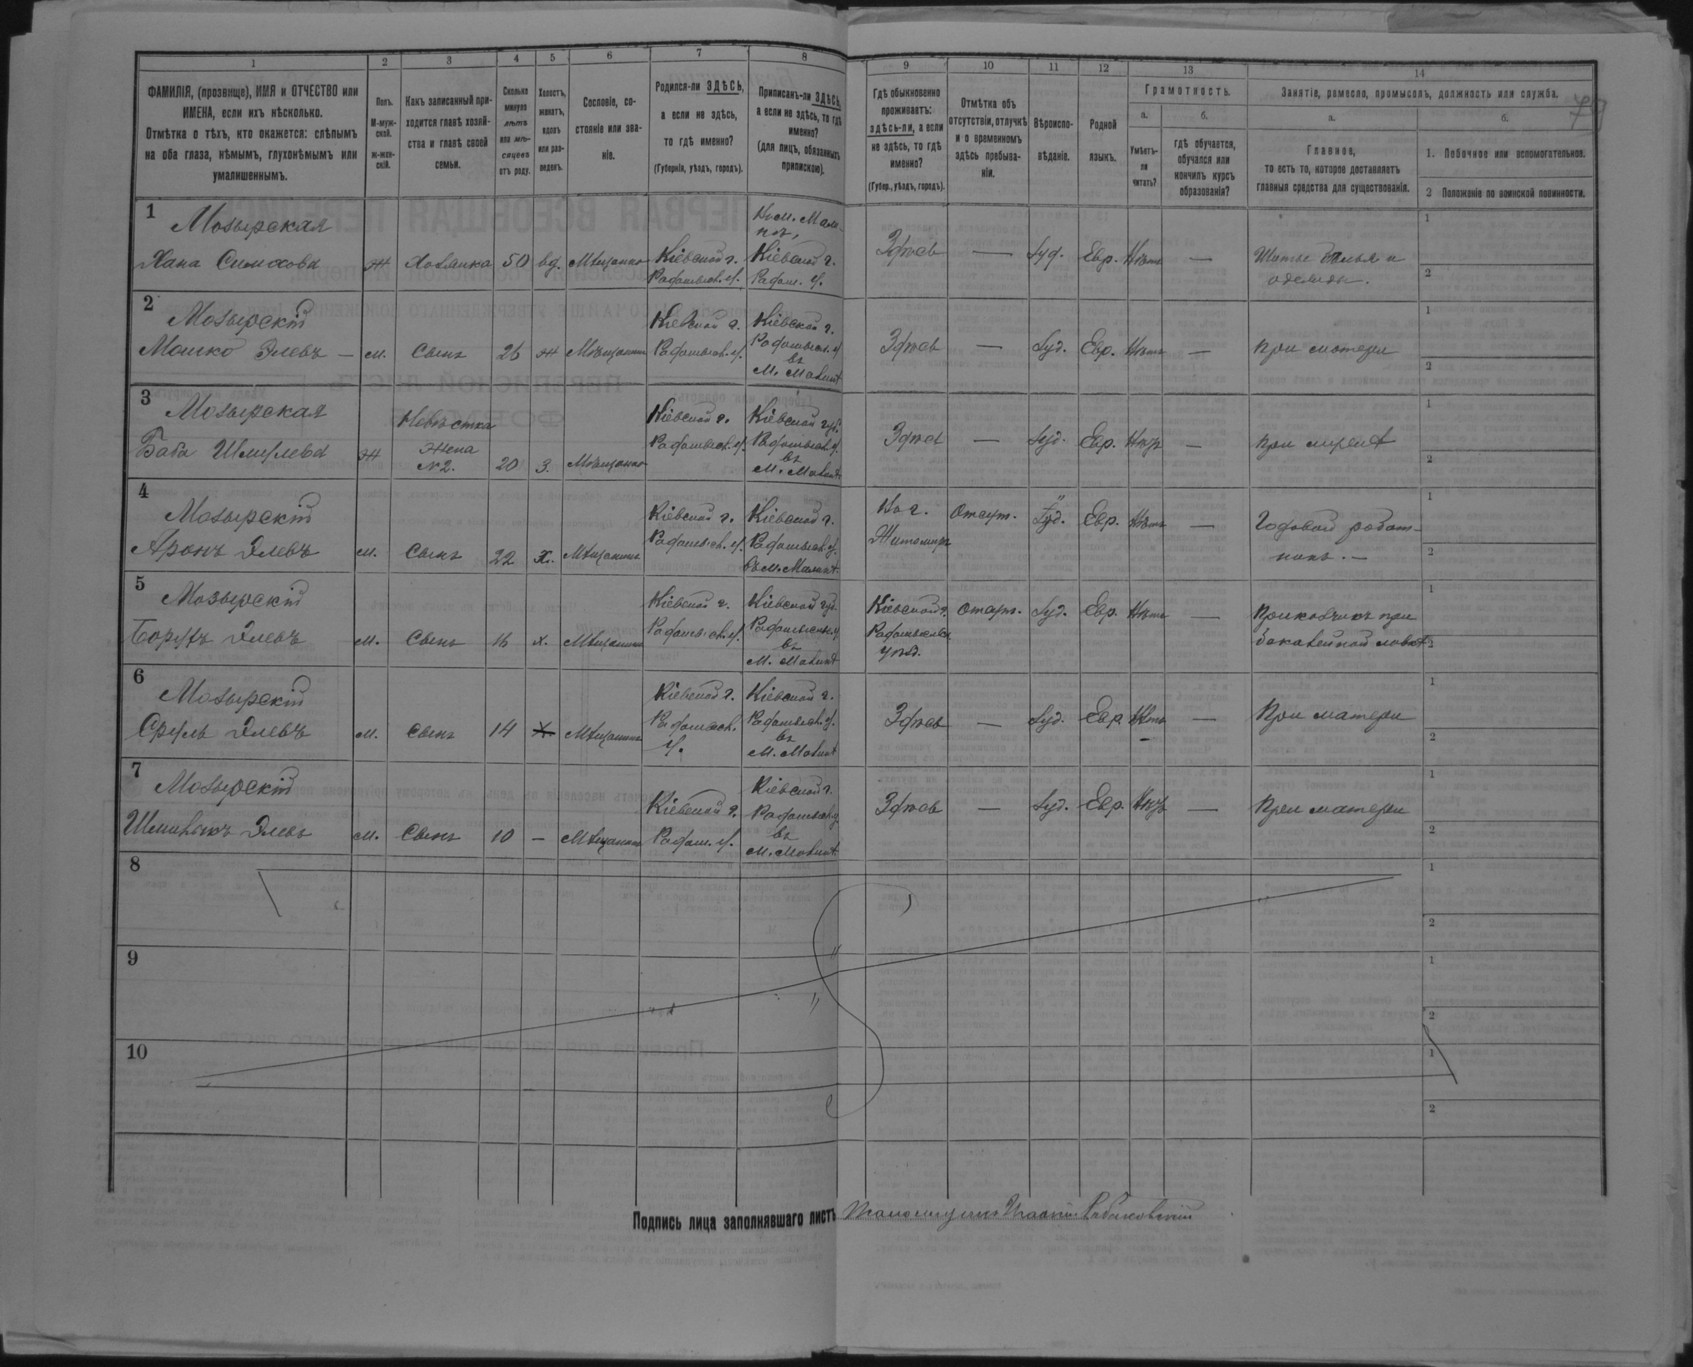 1 2 3 4 5 6 7 8 9 10 11 12 13 14
ФАМИЛІЯ, (прозвище), ИМЯ и ОТЧЕСТВО или
ИМЕНА, если ихъ нѣсколько.
Отмѣтка о тѣхъ, кто окажется: слѣпымъ
на оба глаза, нѣмымъ, глухонѣмымъ или
умалишеннымъ.
Полъ.
М-муж-
ской.
ж-жен-
скій.
Какъ записанный при-
ходится главѣ хозяй-
ства и главѣ своей
семьи.
Сколько
минуло
лѣтъ
или мѣ-
сяцевъ
отъ роду.
Холостъ,
женатъ,
вдовъ
или раз-
веденъ.
Сословіе, со-
стояніе или зва-
ніе.
Родился-ли ЗДѢСЬ,
а если не здѣсь,
то гдѣ именно?
(Губернія, уѣздъ, городъ).
Приписанъ-ли ЗДѢСЬ,
а если не здѣсь, то гдѣ
именно?
(для лицъ, обязанныхъ
припискою).
Гдѣ обыкновенно
проживаетъ:
здѣсь-ли, а если
не здѣсь, то гдѣ
именно?
(Губер., уѣздъ, городъ).
Отмѣтка объ
отсутствіи, отлучкѣ
и о временномъ
здѣсь пребыва-
ніи.
Вѣроиспо-
вѣданіе.
Родной
языкъ.
Грамотность.
а.
Умѣетъ-
ли
читать?
б.
гдѣ обучается,
обучался или
кончилъ курсъ
образованія?
Занятія, ремесло, промыселъ, должность или служба.
а.
Главное,
то есть то, которое доставляетъ
главныя средства для существованія.
б.
1. Побочное или вспомогательное.
2 Положеніе по воинской повинности.
1
Мозырская
Хана Симхова
ж
Хозяйка
50
вд.
Мѣщанка
Кіевской г.
Радомысл. у.
Кіевской г.
Радом. у.
Здѣсь
—
Іуд.
Евр.
Нѣтъ
—
Шитье бѣлья и
одежды.
1
2
2
Мозырскій
Мошко Элевъ —
м.
Сынъ
26
ж
Мѣщанинъ
Кіевской г.
Радомысл. у.
Кіевской г.
Радомысл. у
въ
м. Малинѣ
Здѣсь
—
Іуд.
Евр.
Нѣтъ
—
При матери
1
2
3
Мозырская
Баба Шмулева
ж
Невѣстка
жена
№2.
20
з.
Мѣщанка
Кіевской г.
Радомысл. у.
Кіевской губ.
Радомысл. у.
въ
м. Малинѣ
Здѣсь
—
Іуд.
Евр.
Нѣтъ
—
1
2
4
Мозырскій
Аронъ Элевъ
м.
Сынъ
22
х.
Мѣщанинъ
Кіевской г.
Радомысл. у.
Кіевской г.
Радомысл. у.
въ м. Малинѣ
Въ г.
Житомирѣ
отсут.
Іуд.
Евр.
Нѣтъ
—
Годовой работ-
никъ. —
1
2
5
Мозырскій
Борухъ Элевъ
м.
Сынъ
16
х.
Мѣщанинъ
Кіевской г.
Радомысл. у.
Кіевской губ.
Радомысльск. у
въ
м. Малинѣ
Кіевской г.
Радомысльск.
уѣзд.
отсут.
Іуд.
Евр.
Нѣтъ
—
Приказчикъ при
бакалейной лавкѣ
1
2
6
Мозырскій
Сруль Элевъ
м.
Сынъ
14
х.
Мѣщанинъ
Кіевской г.
Радомысл.
у.
Кіевской г.
Радомысл. у.
въ
м. Малинѣ
Здѣсь
—
Іуд.
Евр
Нѣтъ
—
При матери
1
2
7
Мозырскій
Элевъ
м.
Сынъ
10
—
Мѣщанинъ
Кіевской г.
Радом. у.
Кіевской г.
Радомысл. у
въ
м. Малинѣ
Здѣсь
—
Іуд.
Евр.
Нѣтъ
—
При матери
1
2
8
1
2
9
1
2
10
1
2
Подпись лица заполнявшаго листъ